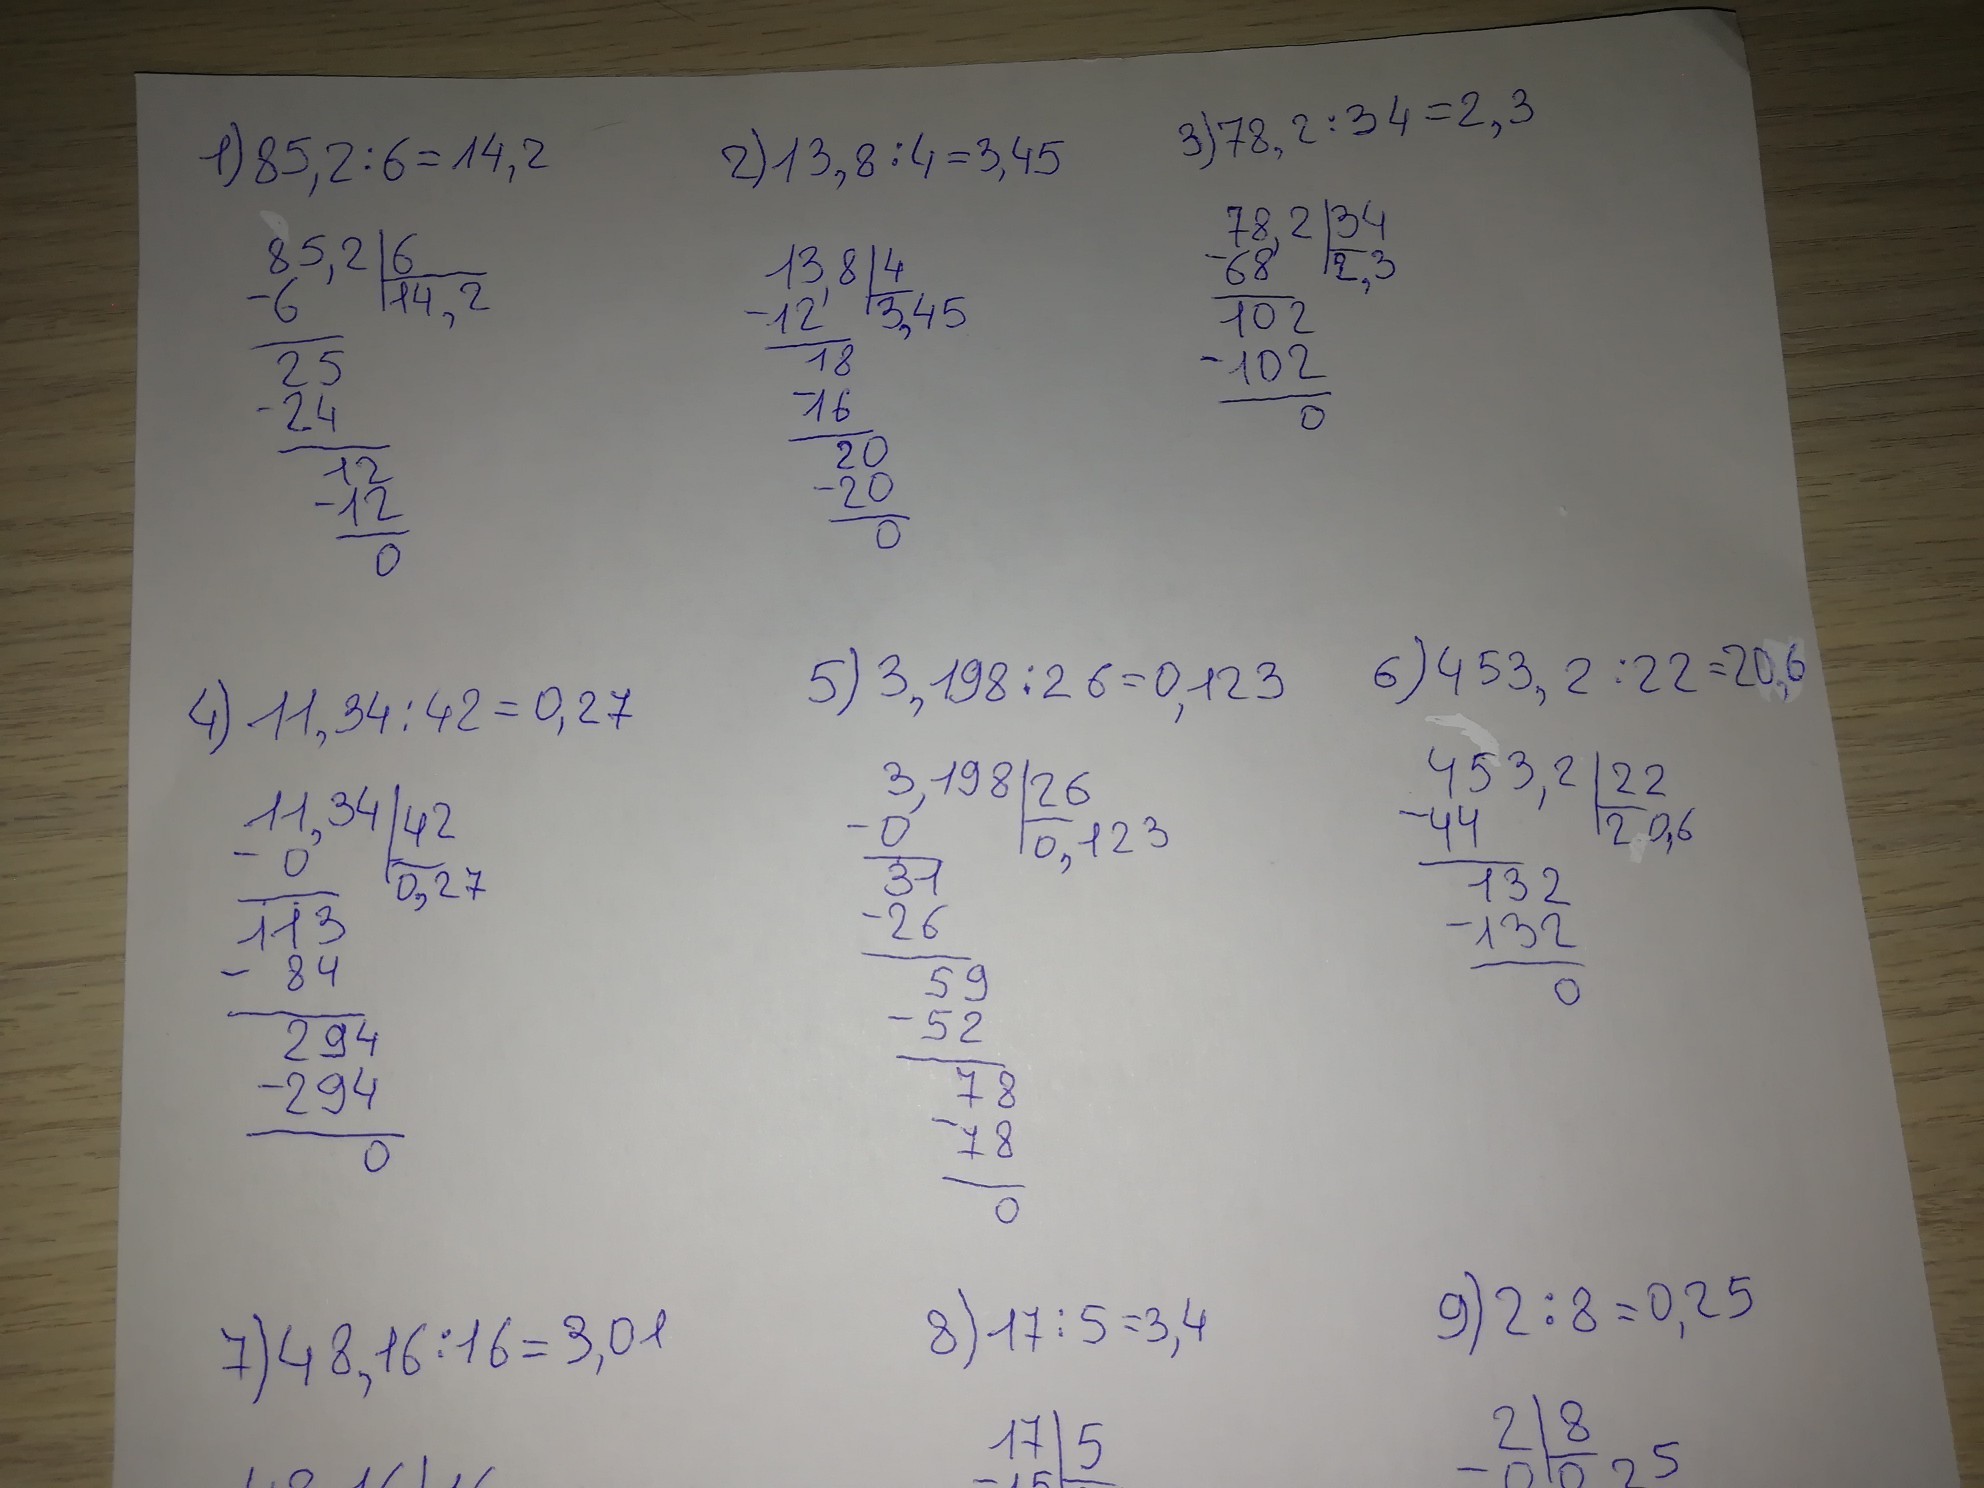 1) 85,2:6=14,2
85,2|6
-6 |14,2
25
-24
12
-12
0
2) 13,8:4=3,45
13,8|4
-12 |3,45
18
-16
20
-20
0
3) 78,2:34=2,3
78,2|34
-68 |2,3
102
-102
0
4) 11,34:42=0,27
11,34|42
-0 |0,27
113
-84
294
-294
0
5) 3,198:26=0,123
3,198|26
-0 |0,123
31
-26
59
-52
78
-78
0
6) 453,2:22=20,6
453,2|22
-44 |20,6
132
-132
0
7) 48,16:16=3,01
48,16|16
8) 17:5=3,4
17|5
-15
9) 2:8=0,25
2|8
-0 |0,25